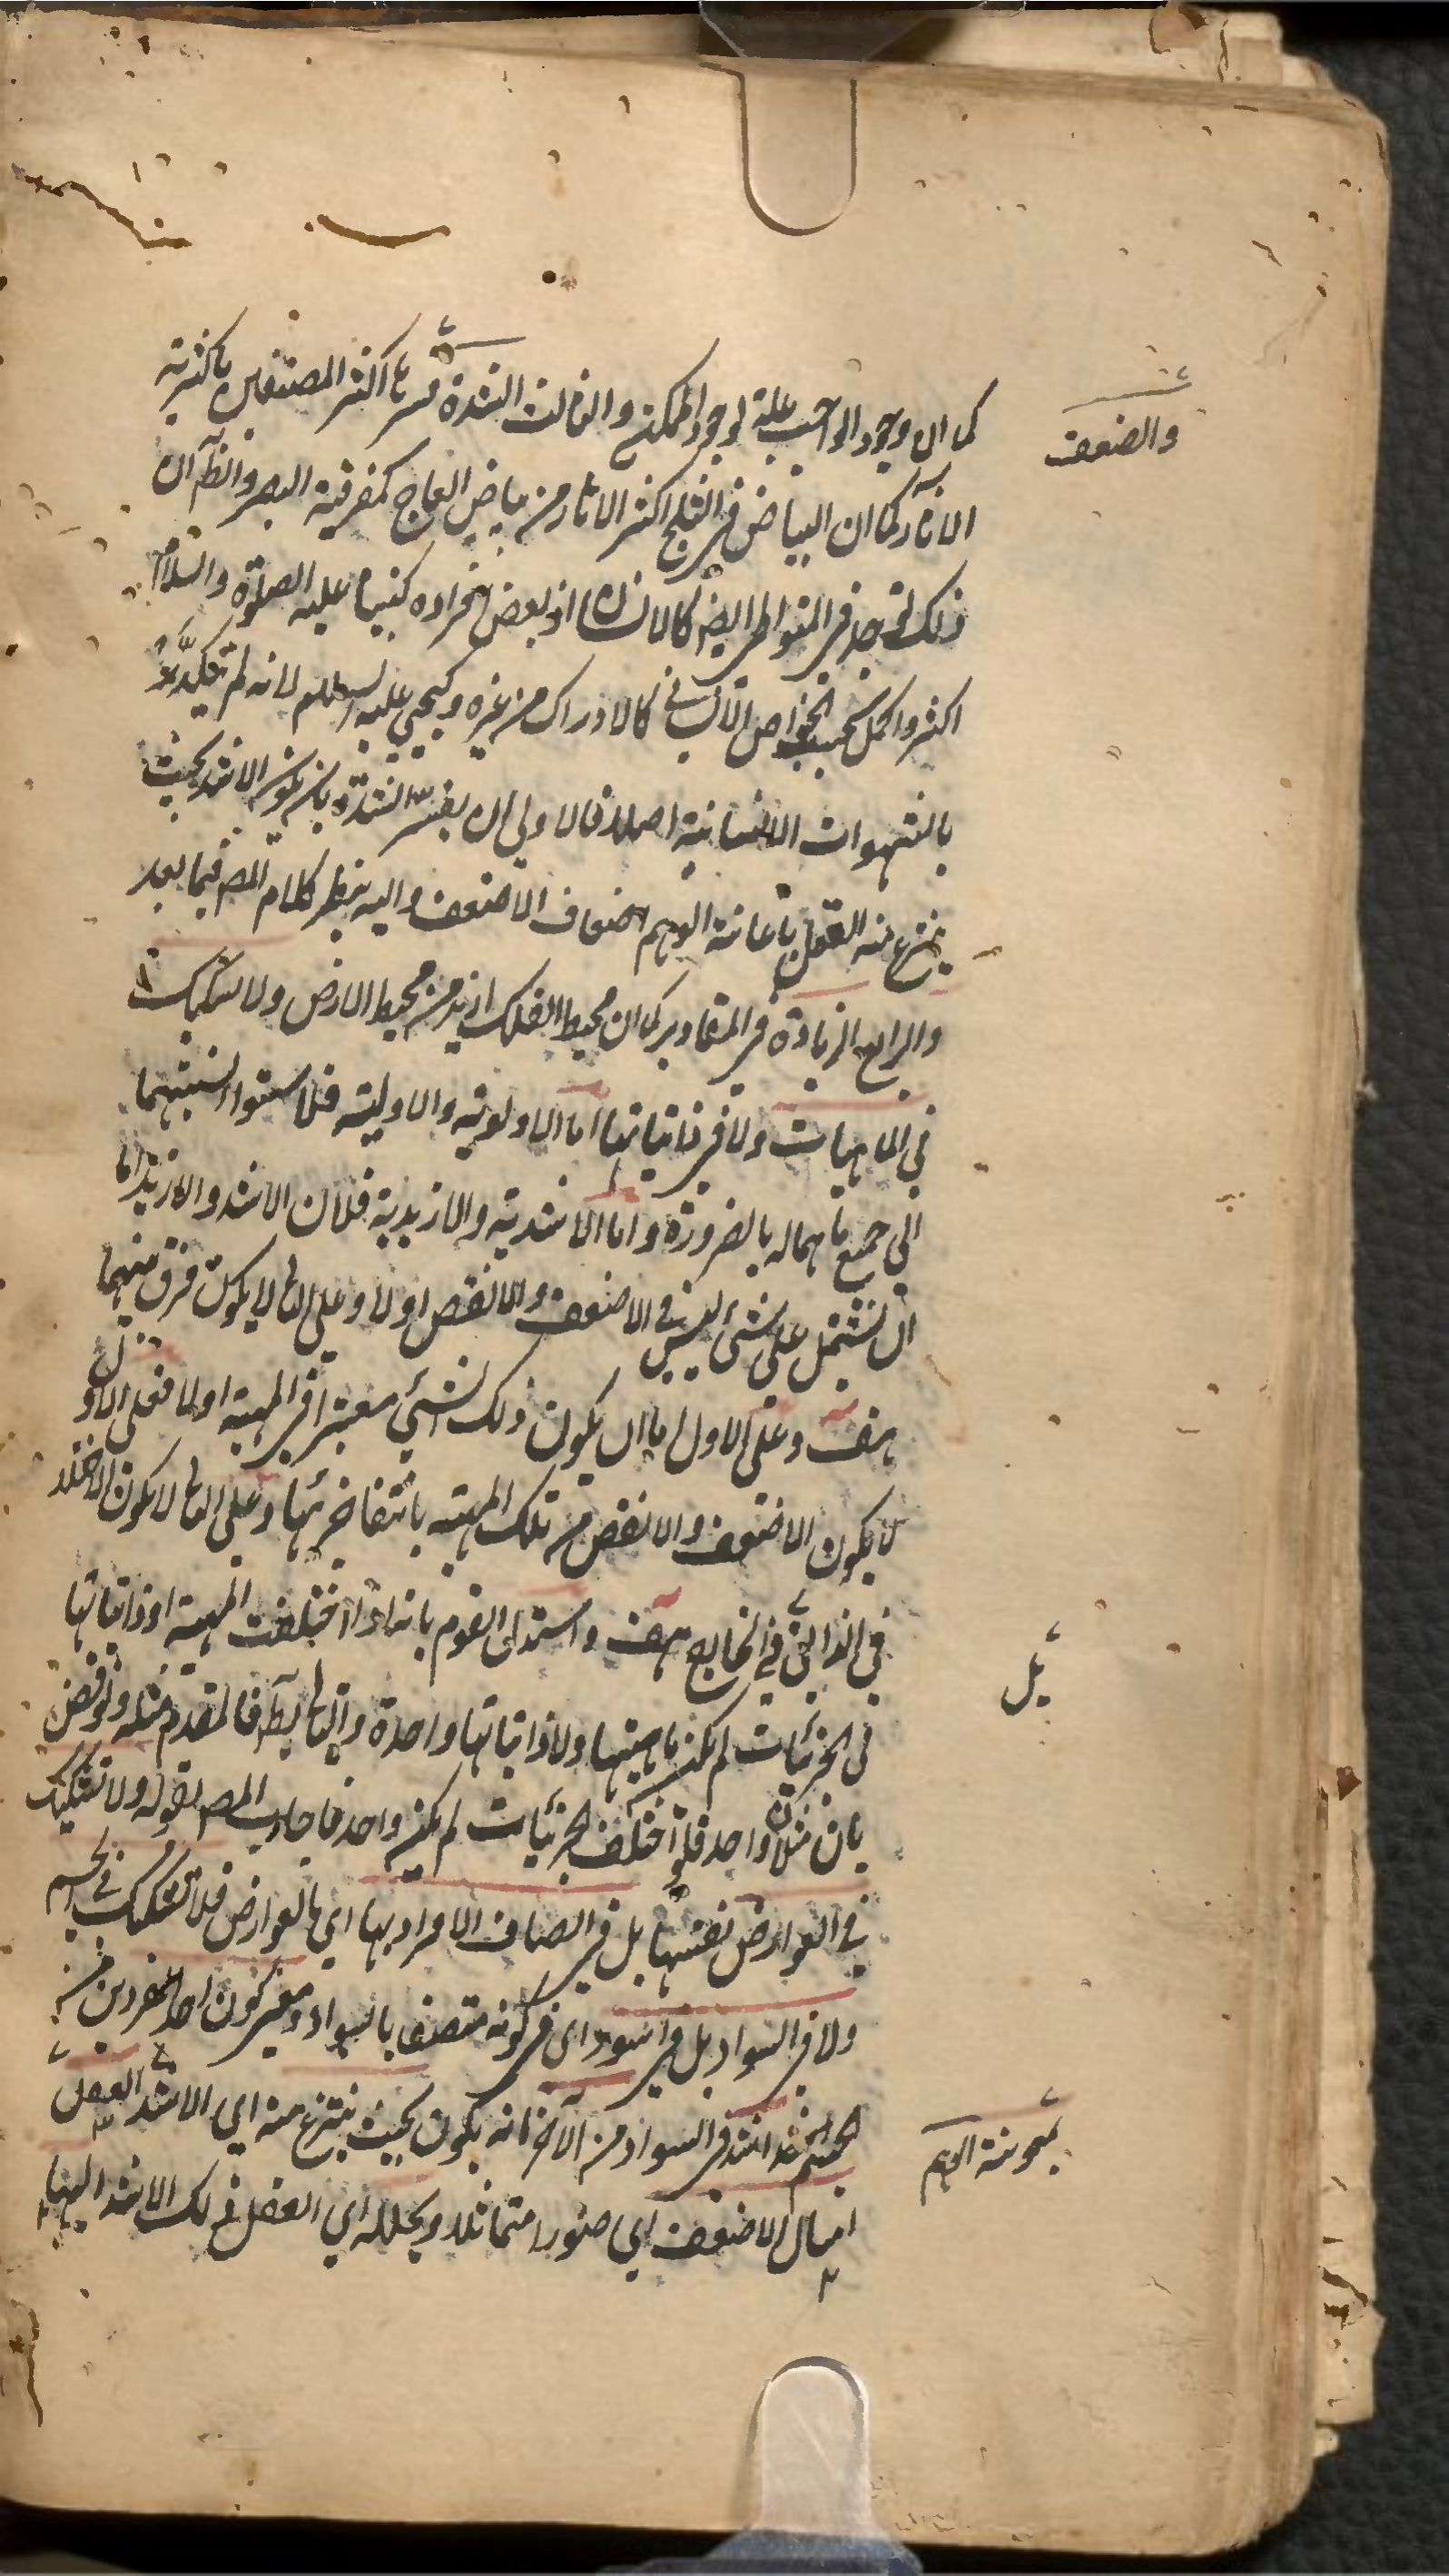 كما ان وجود الواجب علة لوجود الممكن والثالث الشدة فسرها اكثر المصنفين باكثرية
والضعف
الآثار كما ان البياض فى الثلج اكثر الآثار من بياض العاج كمفرقية البصر والظ ان
ذلك توجد فى المتواطى ايضا كالانسان اذ بعض افراده كنبينا عليه الصلوة والسلام
اكثر واكمل بحسب الخواص الانسانى كالادراك من غيره وكيحيى عليه السلام لانه لم
بالشهوات النفسانية اصلا فالاولى ان يفسر الشدة بان يكون الاشد بحيث
ينتزع منه العقل باعانة الوهم اضعاف الاضعف واليه ينظر كلام المص فيما بعد
والرابع الزيادة فى المقادير كما ان محيط الفلك ازيد من محيط الارض ولا تشكيك
فى الماهيات ولا فى ذاتياتها اما الاولوية والاولية فلاستواء نسبتهما
الى جميع ما هما له بالضرورة واما الاشدية والازيدية فلان الاشد والازيد اما
ان تشتمل على شىء ليس فى الاضعف والانقص اولا وعلى الثانى لا يكون فرق بينهما
هف وعلى الاول اما ان يكون ذلك الشىء معتبرا فى المهية اولا فعلى الاول
لا يكون الاضعف والانقص من تلك المهية بانتفاء جزئها وعلى الثانى لا يكون الاختلاف
فى الذاتى فى الخارج هف واستدل القوم بانه اذا اختلفت المهية او ذاتياتها
بل
فى الجزئيات لم يكن ماهيتها ولا ذاتياتها واحدة والتالى بط فالمقدم مثله ونوقض
بان مثلا واحد فلو اختلف الجزئيات لم يكن واحد فاجاب المص بقوله ولا تشكيك
فى العوارض نفسها بل فى اتصاف الافراد بها اى بالعوارض فلا تشكيك فى الجسم
ولا فى السواد بل فى اسود اى فى كونه متصفا بالسواد ومعنى كون احد الفردين من
الجسم اشد فى السواد من الآخر انه يكون بحيث ينتزع منه اى الاشد العقل
بمعونة الوهم
امثال الاضعف اى صورا متماثلة ويحلله اى العقل ذلك الاشد اليها